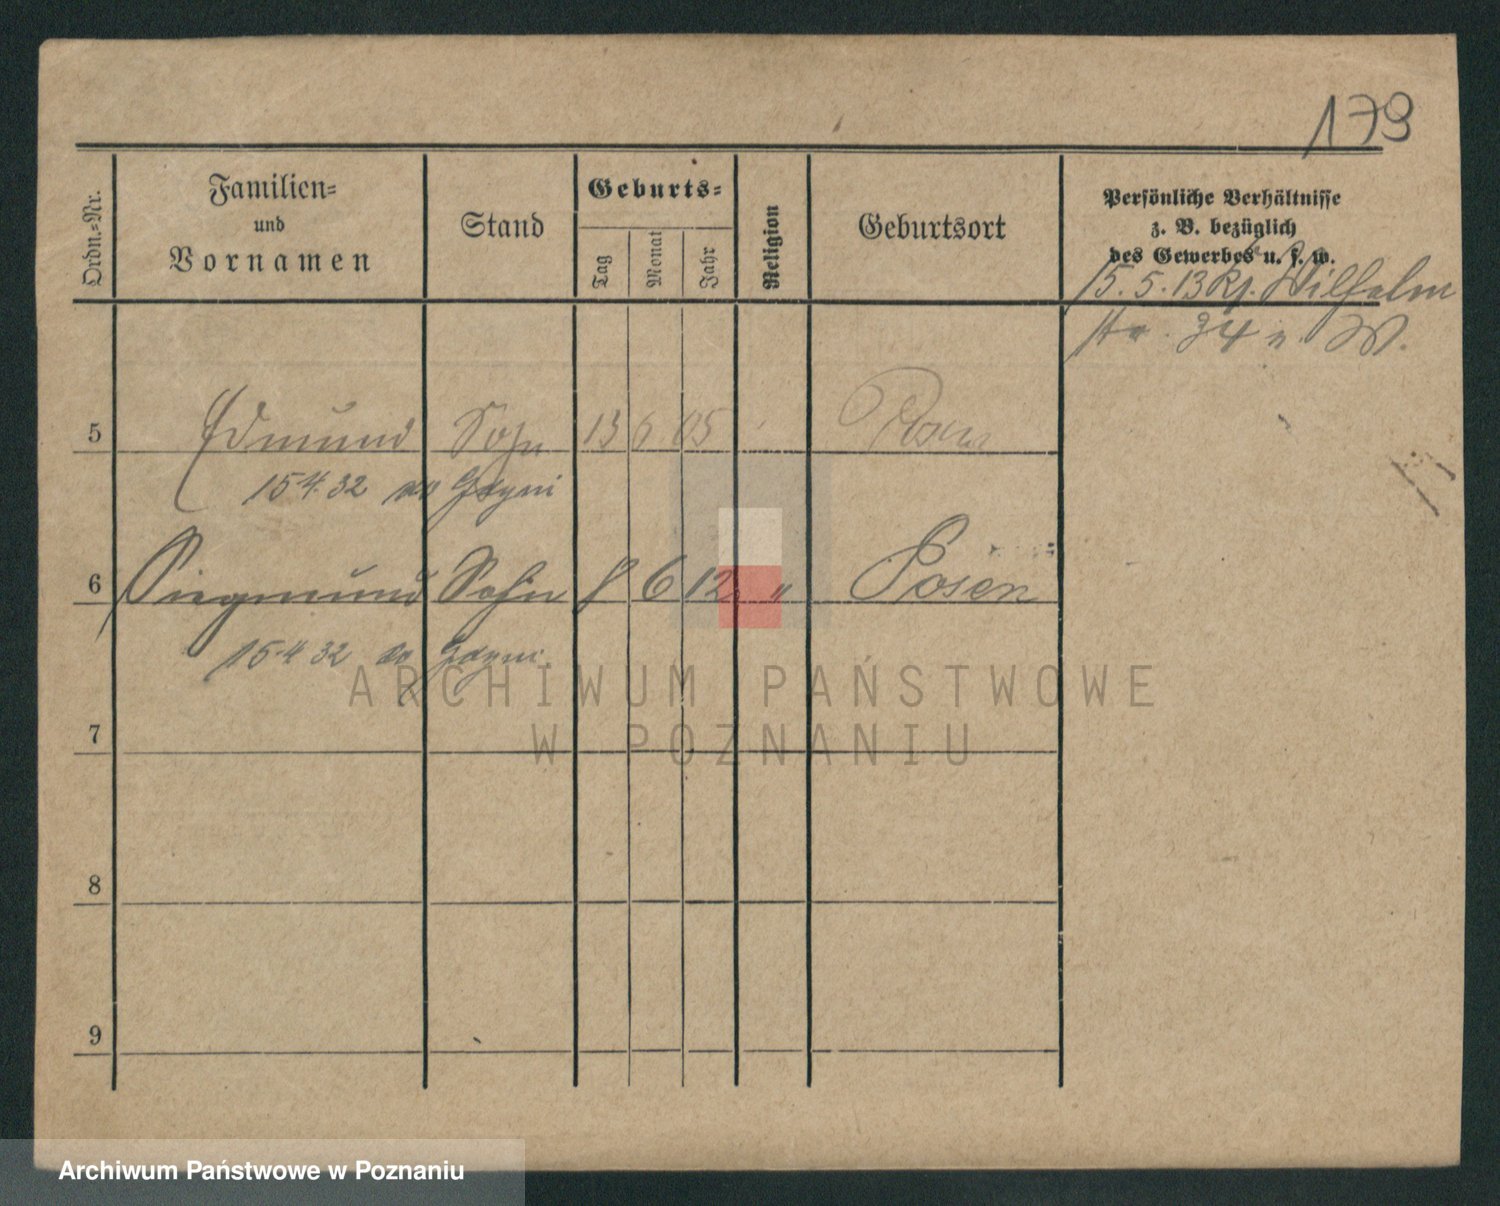 179
Ordn.=Nr.
Familien=
und
Vornamen
Stand
Geburts=
Tag
Monat
Jahr
Religion
Geburtsort
Persönliche Verhältnisse
z. B. bezüglich
des Gewerbes u. s. w.
15. 5. 13 Wilhelm
str. 34
5 Edmund Sohn 13 6 05 Posen
15 4. 32 do Gdyni
6 Siegmund Sohn 8 6 12 " Posen
15 4 32 do Gdyni
7
8
9
ARCHIWUM PAŃSTWOWE
W POZNANIU
Archiwum Państwowe w Poznaniu